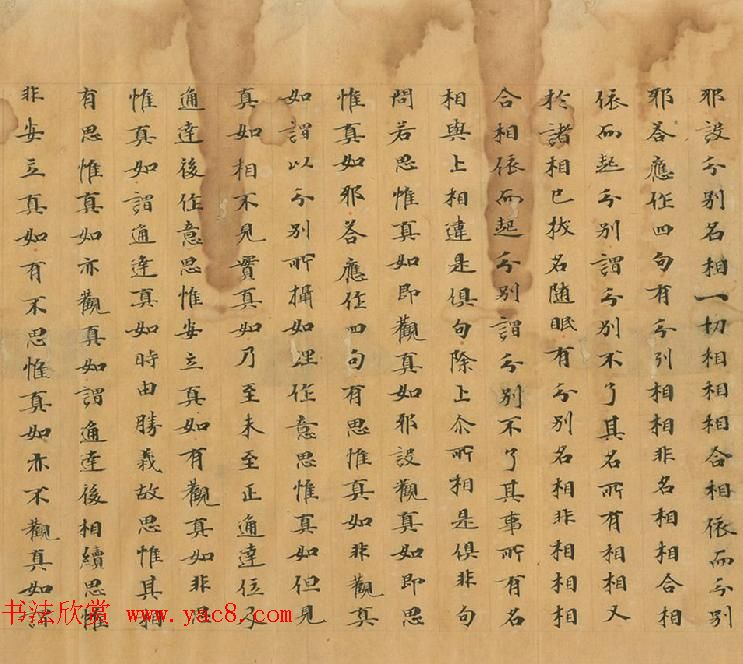 耶設分別名相一切相相相合相依而分別
耶荅應作四句有分別相相非名相相合相
依而起分別謂分別不了其名所有相相又
於諸相已拔名随眠有分別名相非相相相
合相依而起分別謂分別不了其事所有名
相與上相違是俱句除上尒所相是俱非句
問若思惟真如即觀真如耶設觀真如即思
惟真如耶荅應作四句有思惟真如非觀真
如謂以分別所攝如理作意思惟真如但見
真如相不見實真如乃至未至正通達位及
通達後作意思惟安立真如有觀真如非思
惟真如謂通達真如時由勝義故思惟其相
有思惟真如亦觀真如謂通達後相續思惟
非安立真如有不思惟真如亦不觀真如謂
书法欣赏 www.yac8.com